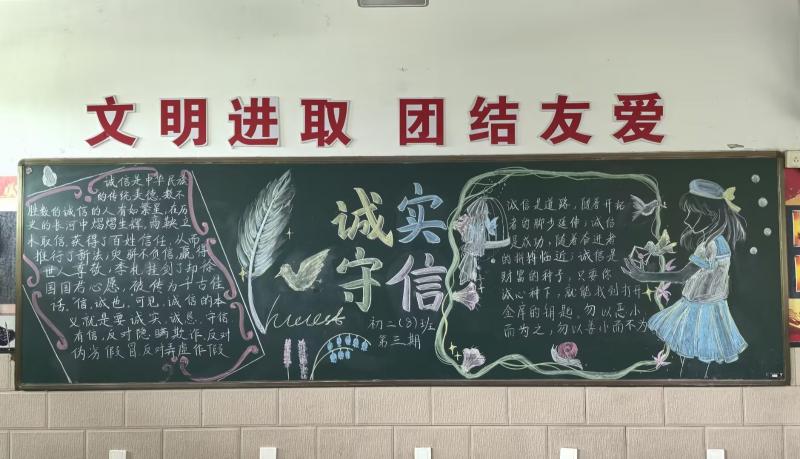 文明进取 团结友爱
诚信是中华民族
的传统美德。数不
胜数的诚信的人有如繁星,在历
史的长河中熠熠生辉,商鞅立
木取信,获得了百姓信任,从而
推行了新法;
世人尊敬,季札挂剑了却徐
国国君心愿,被传为千古佳
话。信,诚也,可见,诚信的本
义就是要诚实、诚恳、守信
有信,反对隐瞒欺诈、反对
伪劣假冒、反对弄虚作假
诚实
守信
honest
初二(8)班
第三期
诚信是道路,随着开拓
者的脚步延伸;诚信
是成功,随着奋进者
的拼搏临近;诚信是
财富的种子,只要你
诚心种下,就能找到打开
金库的钥匙。勿以恶小
而为之,勿以善小而不为